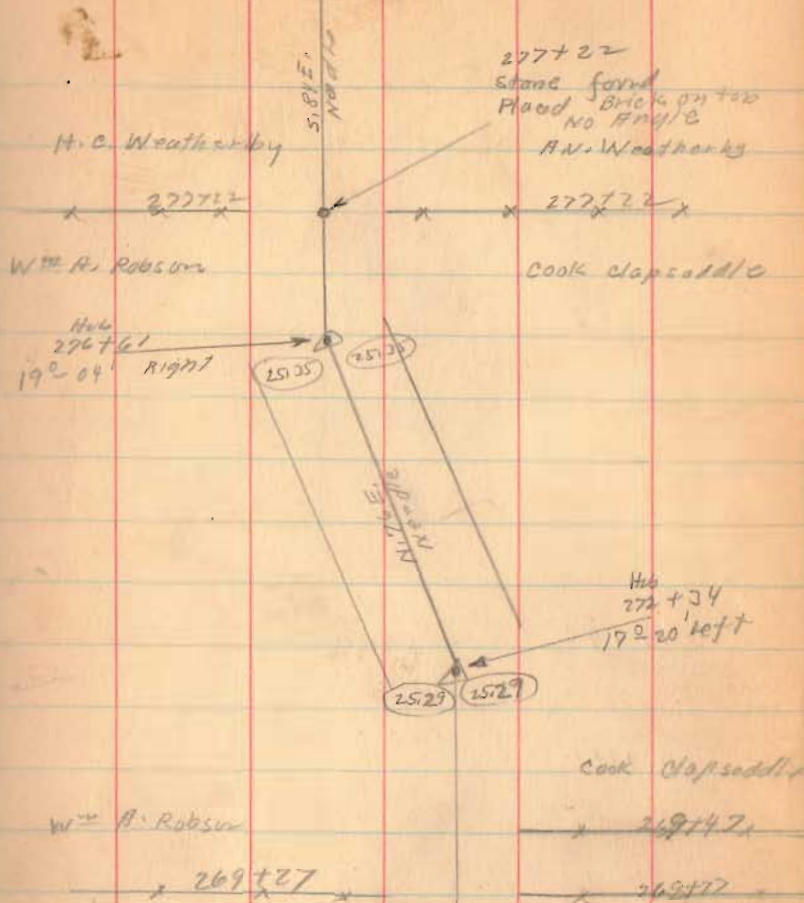 S. 84 E.
Needle
277+22
Stone found
Placd Brick on top
No Angle
H. C. Weatherby
A. N. Weatherby
277+22
277+22
Wm A. Robson
Cook Clapsaddle
Hub
276+61
19°-04' Right
25.35
25.35
N. 76 E.
Needle
Hub
272+34
17° 20' Left
25.29
25.29
Cook Clapsaddle
Wm A. Robson
269+47
269+27
269+27